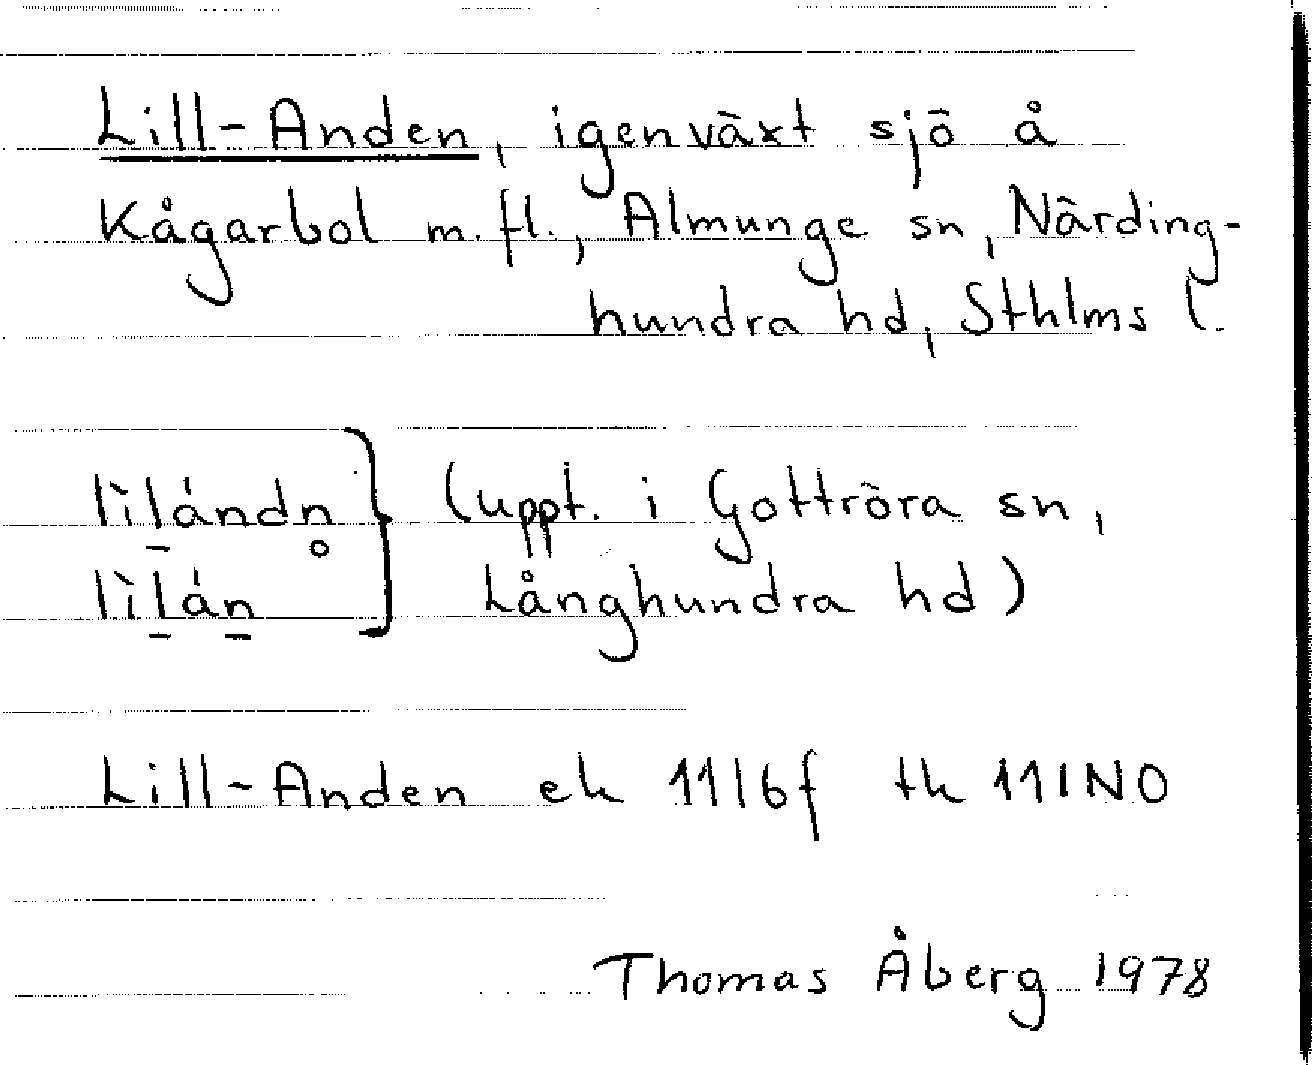 Lill-Anden, igenväxt sjö å
Kågarbol m.fl., Almunge sn, Närding-
hundra hd, Sthlms l.
lìl̠ándn̥ } (uppt. i Gottröra sn,
lìl̠án̠ Långhundra hd)
Lill-Anden ek 11I6f tk 11INO
Thomas Åberg 1978